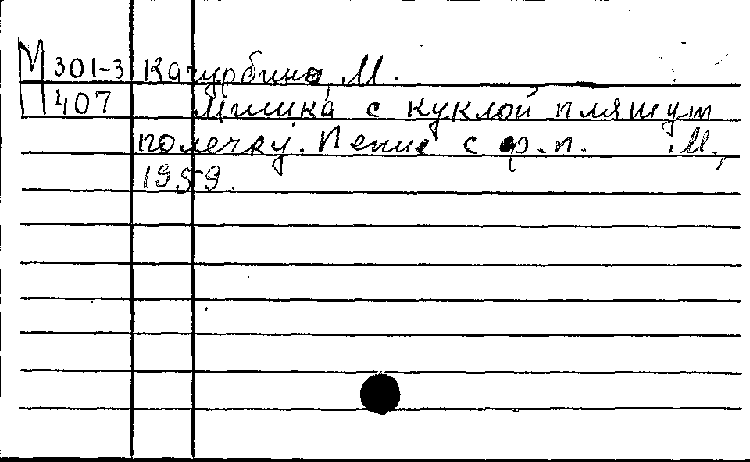 М 301-3 Качурбина, М.
П 407 Мишка с куклой пляшут
полечку. Пение с ф.-п. М.,
1959.